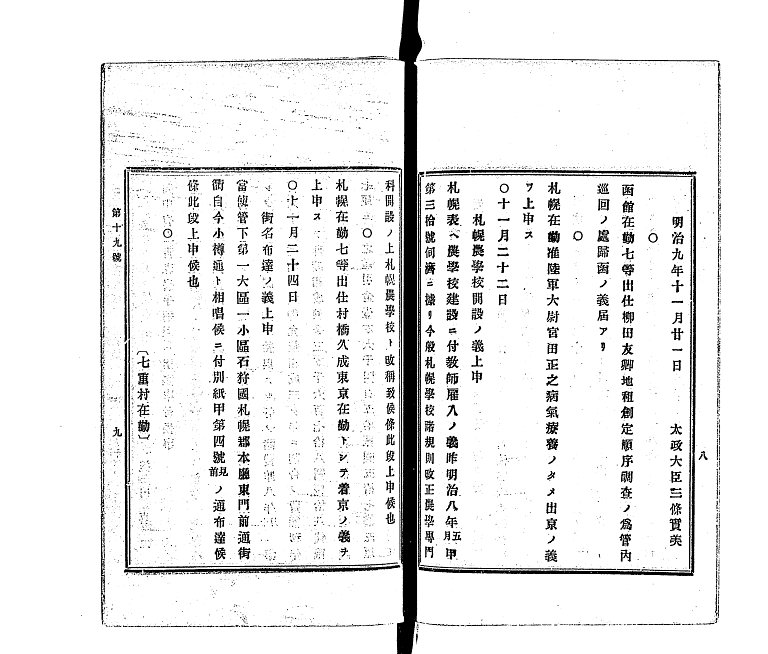 八
明治九年十一月廿一日　太政大臣三條實美
〇
函館在勤七等出仕柳田友卿地租創定順序調査ノ爲管内
巡回ノ處歸函ノ義届アリ
〇
札幌在勤准陸軍大尉官田正之病氣療養ノタメ出京ノ義
ヲ上申ス
〇十一月二十二日
札幌農學校開設ノ義上申
札幌表ヘ農學校建設ニ付教師雇入ノ義昨明治八年五月甲
第三拾號伺濟ニ據リ今般札幌學校諸規則改正農學專門
科開設ノ上札幌農學校ト改稱致候條此段上申候也
〇
札幌在勤七等出仕村橋久成東京在勤トシテ着京ノ義ヲ
上申ス
〇十一月二十四日
街名布達ノ義上申
當使管下第一大區一小區石狩國札幌郷本廳東門前通街
衢自今小樽通ト相唱候ニ付別紙甲第四號前見ノ通布達候
條此段上申候也
〇
〔七重村在勤〕
第十九號
九